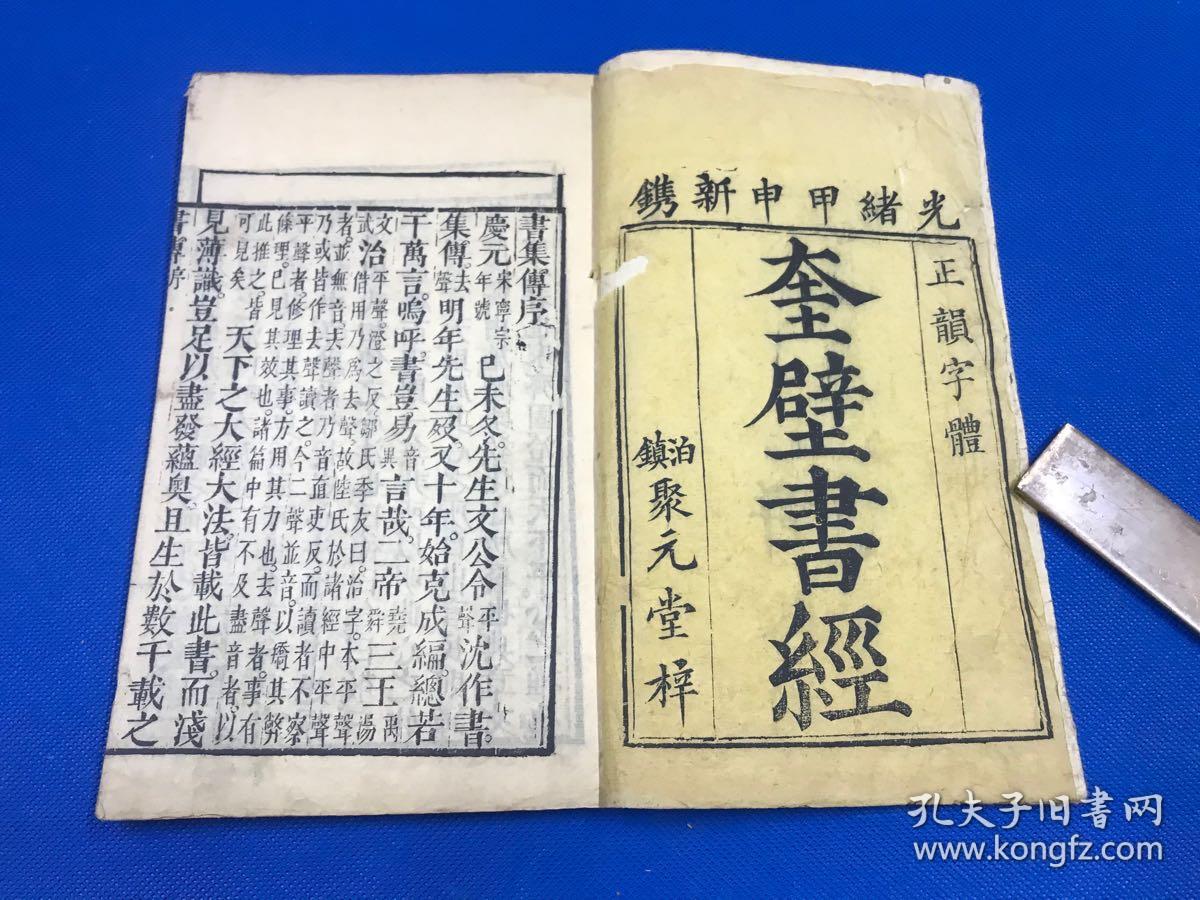 光緒甲申新鐫
正韻字體
奎壁書經
泊鎮聚元堂梓
書集傳序
慶元年號宋寧宗己未冬。先生文公令平聲沈作書
集傳。去聲明年先生歿。又十年。始克成編。總若
干萬言。嗚呼。書豈易音異言哉。二帝堯舜三王禹湯
文武治平聲。澄之反。鄒氏季友曰。治字。本平聲
借用乃爲去聲。故陸氏於諸經中平聲
者。並無音。去聲者。乃音直吏反。而讀者不察
乃或皆作去聲讀之。今二聲並音。以矯其弊
平聲者。修理其事。方用其力也。去聲者。事有
條理。已見其效也。諸篇中有不及盡音者。以
此推之。皆可見矣天下之大經大法。皆載此書。而淺
見薄識。豈足以盡發蘊奧。且生於數千載之
書傳序
孔夫子旧书网
www.kongfz.com